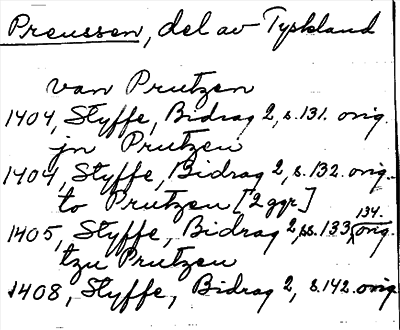 Preussen, del av Tyskland
van Prutzen
1404, Styffe, Bidrag 2, s. 131. orig.
jn Prutzen
1404, Styffe, Bidrag 2, s. 132. orig.
to Prutzen [2 ggr]
1405, Styffe, Bidrag 2, ss. 133, 134. orig.
tzu Prutzen
1408, Styffe, Bidrag 2, s. 142. orig.